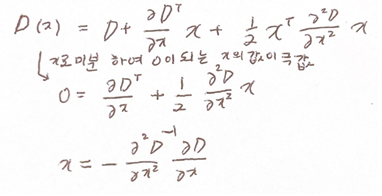 D(x) = D + ∂Dᵀ/∂x x + 1/2 xᵀ ∂²D/∂x² x
x로 미분 하여 0이 되는 x의 값이 극값
0 = ∂Dᵀ/∂x + 1/2 ∂²D/∂x² x
x = - ∂²D⁻¹/∂x² ∂D/∂x